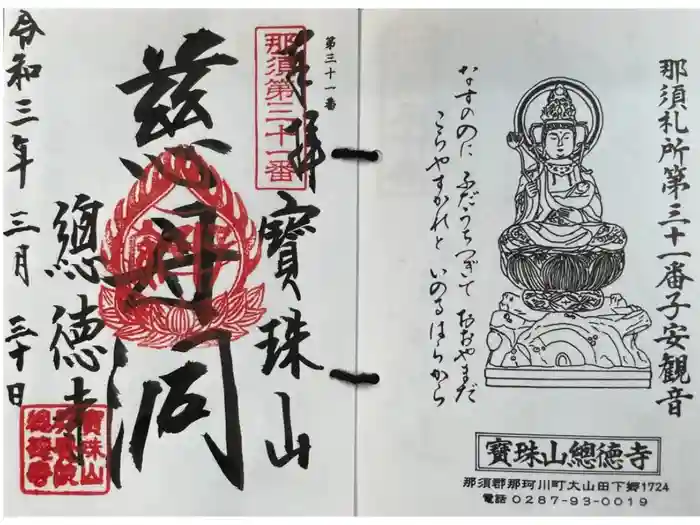 那須札所第三十一番子安観音
なすののに ふだうちつぎて おおやまだ
こらやすかれと いのるはらから
寶珠山總徳寺
那須郡那珂川町大山田下郷1724
電話 0287-93-0019
第三十一番
奉拝
那須第三十一番
寶珠山
慈
總徳寺
令和三年 三月 三十日
寶珠山
總徳寺